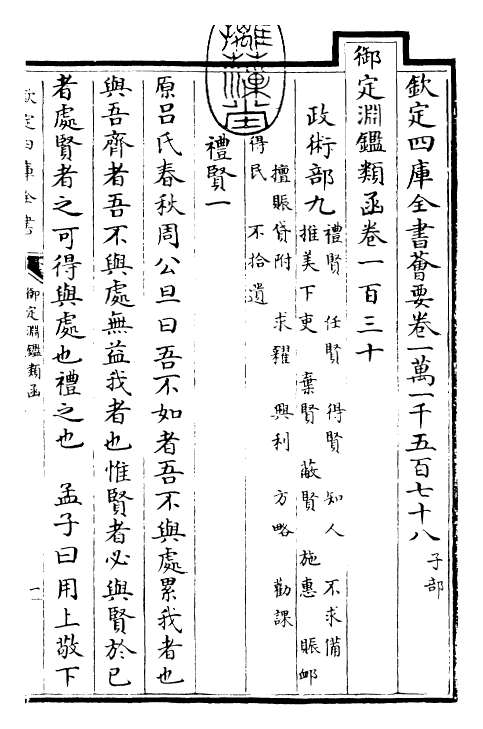 欽定四庫全書薈要卷一萬一千五百七十八 子部
御定淵鑑類函卷一百三十
政術部九 禮賢 任賢 得賢 知人 不求備
推美下吏 棄賢 蔽賢 施惠 賑卹
擅賑貸附 求糴 興利 方略 勸課
得民 不拾遺
禮賢一
摛藻堂
原呂氏春秋周公旦曰吾不如者吾不與處累我者也
與吾齊者吾不與處無益我者也惟賢者必與賢於已
者處賢者之可得與處也禮之也 孟子曰用上敬下
欽定四庫全書
御定淵鑑類函
一